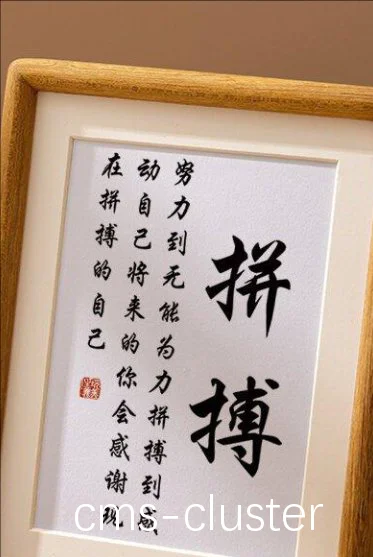 拼搏
努力到无能为力拼搏到感
动自己将来的你会感谢现
在拼搏的自己
cms-cluster